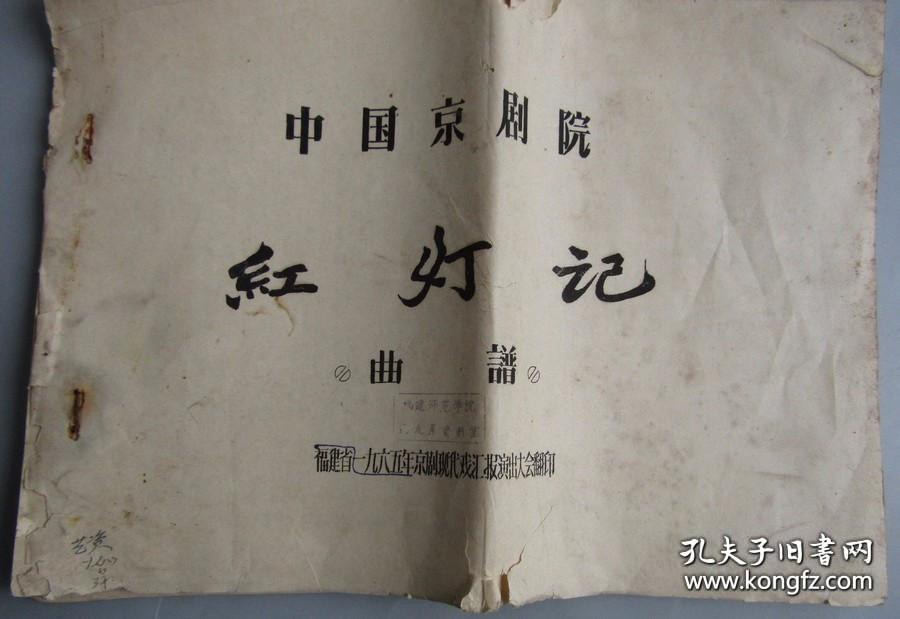 中国京剧院
紅灯记
曲譜
福建师范学院
福建省一九六五年京剧现代戏汇报演出大会翻印
艺资
孔夫子旧书网
www.kongfz.com